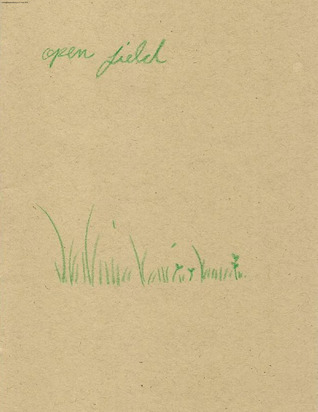 open field